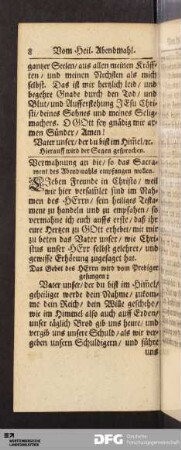 8 Vom Heil. Abendmahl.
gantzer Seelen/ aus allen meinen Kräff-
ten / und meinen Nechsten als mich
selbst. Das ist mir hertzlich leid / und
begehre Gnade durch den Tod / und
Blut/und Aufferstehung JEsu Chri-
sti/ deines Sohnes und meines Selig-
machers. O GOtt sey gnädig mir ar-
men Sünder / Amen!
Vater unser/ der du bist im Himel/ꝛc.
Hierauff wird der Segen gesprochen.
Vermahnung an die / so das Sacra-
ment des Abendmahls empfangen wollen.
LIeben Freunde in Christo / weil
wir hier versamlet sind im Nah-
men des HErrn / sein heiliges Testa-
ment zu handeln und zu empfahen / so
vermahne ich euch auffs erste / daß ihr
eure Hertzen zu GOtt erhebet / mit mir
zu beten das Vater unser / wie Chri-
stus unser HErr selbst gelehret / und
gewisse Erhörung zugesaget hat.
Das Gebet des HErrn wird vom Prediger
gesungen:
Vater unser / der du bist im Himel/
geheiliget werde dein Nahme / zukom-
me dein Reich / dein Wille geschehe/
wie im Himmel also auch auff Erden/
unser täglich Brod gib uns heute / und
vergib uns unser Schuld / als wir ver-
geben unsern Schuldigern / und führe
uns
DFG Deutsche
Forschungsgemeinschaft